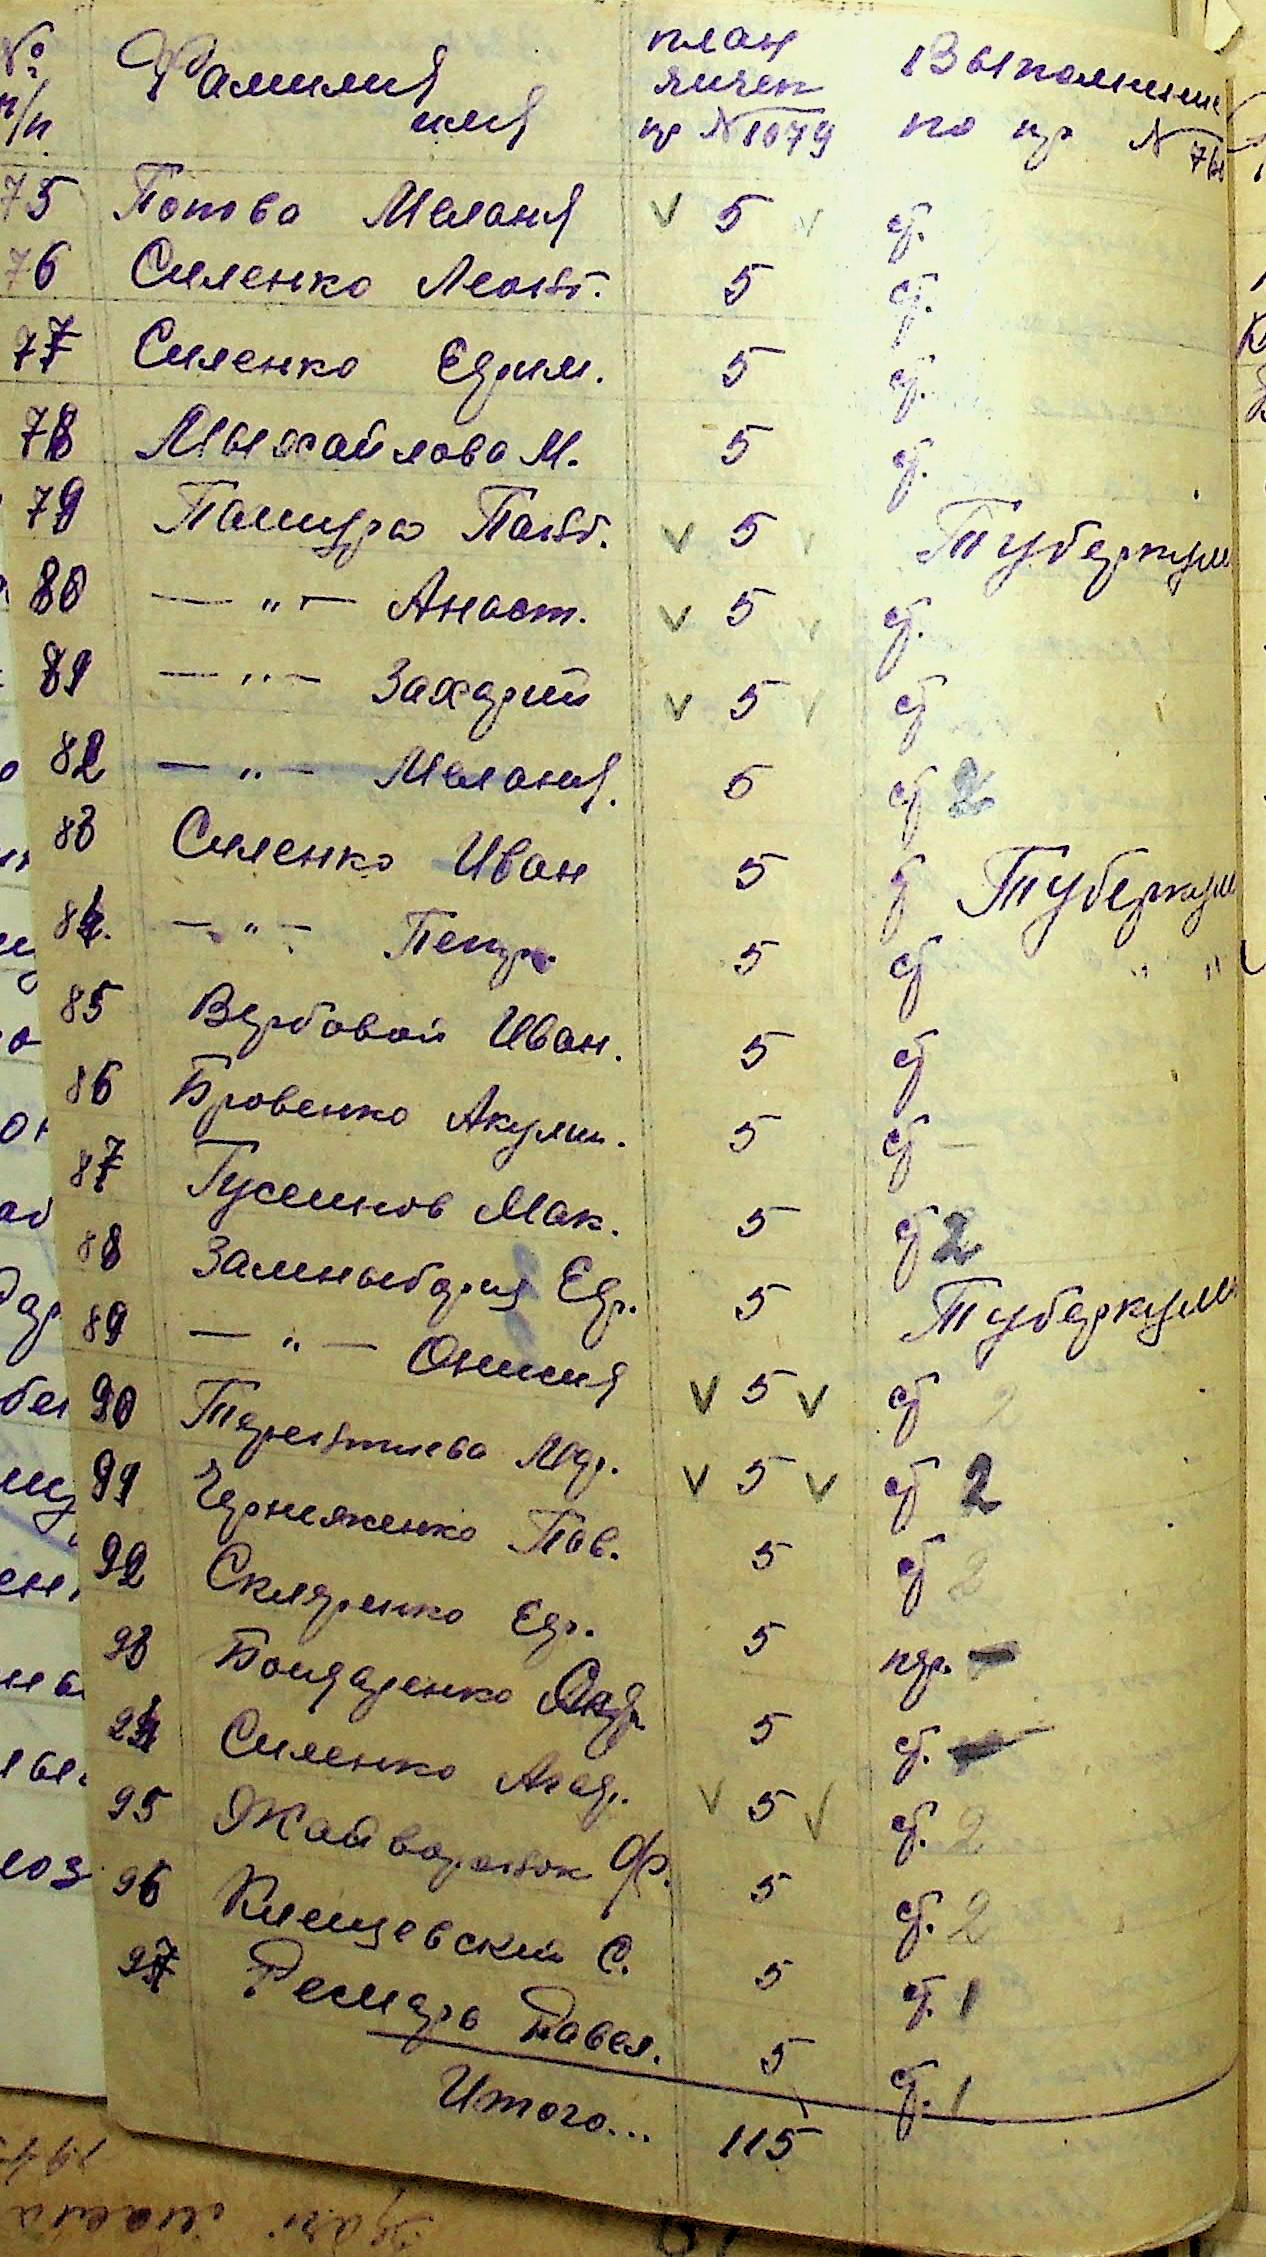 № п/п Фамилия имя план яичек пр №1079 Выполнение по пр №
75 Попова Меланя V 5 V сд.
76 Силенко Леонт. 5 сд.
77 Силенко Ефим. 5 сд.
78 Мыхайлова М. 5 сд.
79 Пошура Пант. V 5 V Туберкул
80 — „ — Анаст. V 5 V сд.
81 — „ — Захарий V 5 V сд
82 — „ — Меланя. 5 сд 2
83 Силенко Иван 5 сд Туберкул
84. — „ — Петр. 5 сд „ „
85 Вербовой Иван. 5 сд
86 Бровенко Акулин. 5 сд –
87 Гусеинов Мак. 5 сд 2
88 Замныборщ Ефр. 5 Туберкули
89 — „ — Онисия V 5 V сд 2
90 Терентиева V 5 V сд 2
91 Черняженко Пав. 5 сд 2
92 Скляренко Ефр. 5 пер.
93 Бондаренко 5 сд.
94 Силенко V 5 V сд. 2
95 Жайворонок Ф. 5 сд. 2
96 Клещевский С. 5 сд. 1
97 Павел. 5 сд. 1
Итого... 115